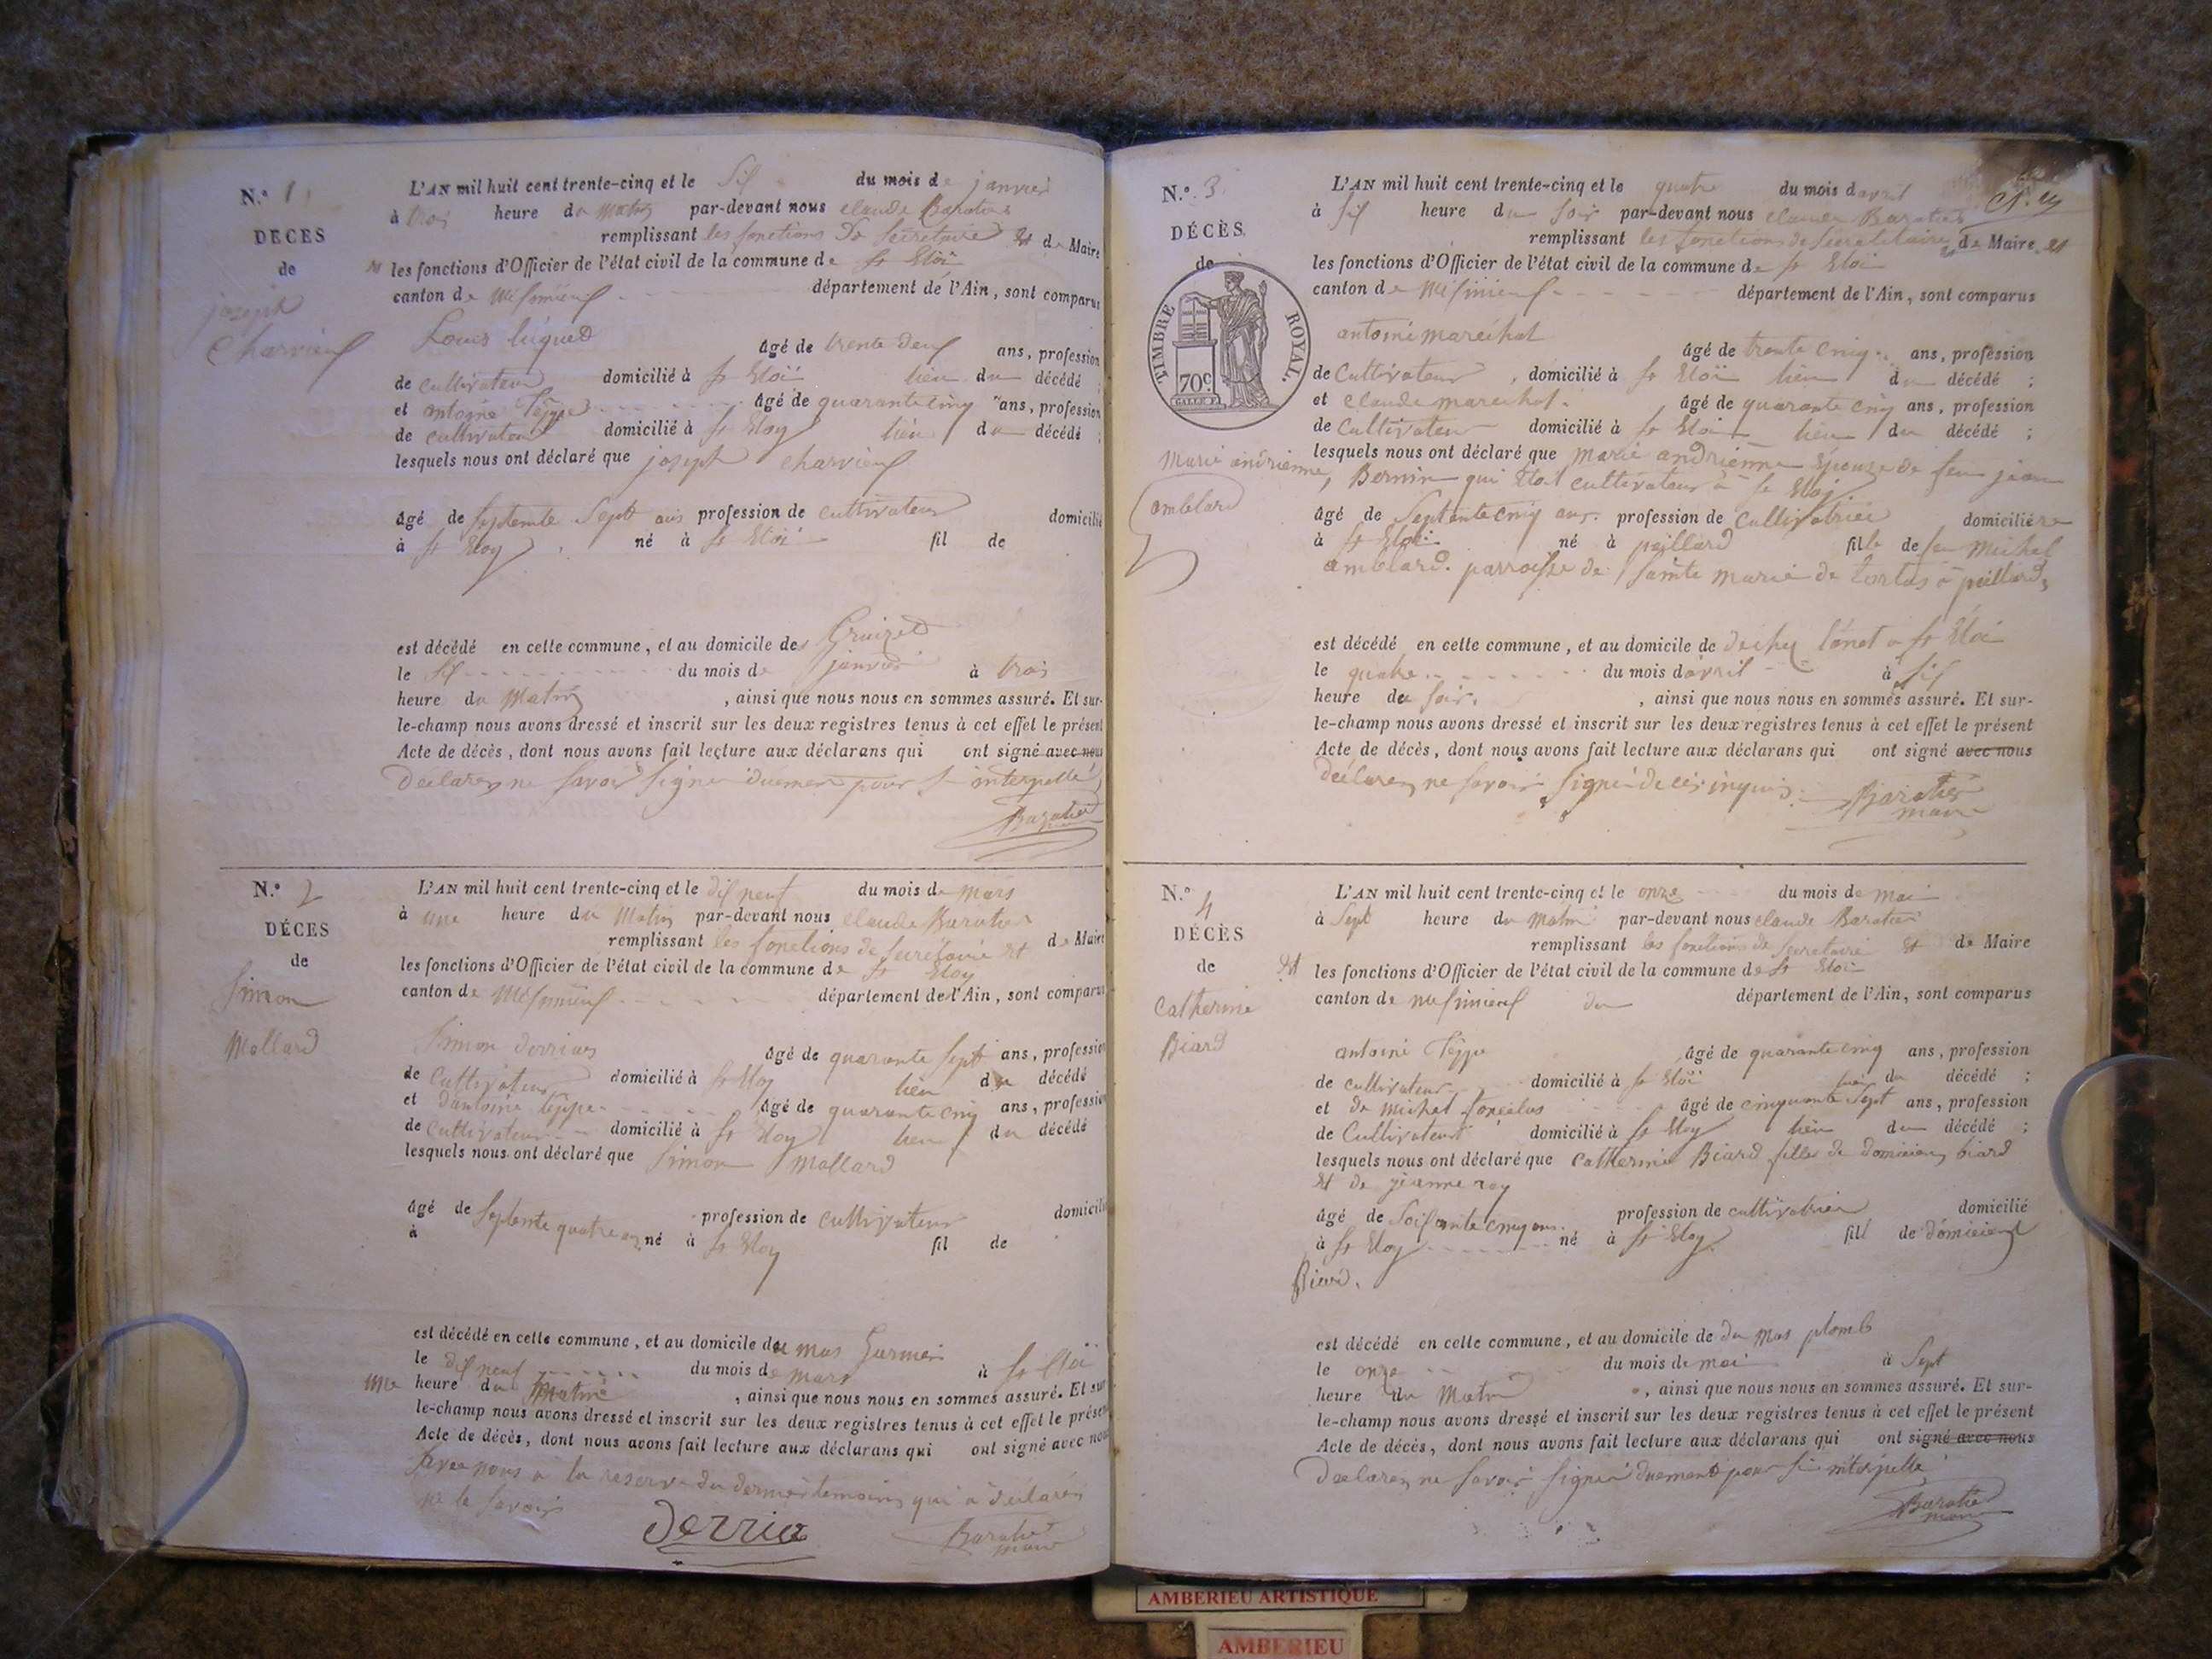 N.° 1
DÉCES
de
joseph
Charvieux
L'AN mil huit cent trente-cinq et le six du mois de janvier
à trois heure du matin par-devant nous claude Baratier
remplissant les fonctions De Secretaire et de Maire
les fonctions d'Officier de l'état civil de la commune de St Eloi
canton de département de l'Ain, sont comparus
Louis
âgé de trente deux ans, profession
de cultivateur domicilié à St Eloi lieu du décédé ;
et antoine Teppe âgé de quarante cinq ans, profession
de cultivateur domicilié à St Eloy lieu du décédé ;
lesquels nous ont déclaré que joseph charvieux
âgé de septente Sept ans profession de cultivateur domicilié
à St Eloy né à St Eloi fil de
est décédé en cette commune, et au domicile de
le six du mois de janvier à trois
heure du Matin , ainsi que nous nous en sommes assuré. Et sur-
le-champ nous avons dressé et inscrit sur les deux registres tenus à cet effet le présent
Acte de décès, dont nous avons fait lecture aux déclarans qui ont signé avec nous
Declarez ne Savoir Signer duement pour interpellé
Baratier
N.° 2
DÉCES
de
Simon
Mallard
L'AN mil huit cent trente-cinq et le dix neuf du mois de mars
à une heure du Matin par-devant nous claude Baratier
remplissant les fonctions de Secretaire et de Maire
les fonctions d'Officier de l'état civil de la commune de St Eloy
canton de département de l'Ain, sont comparus
Simon
âgé de quarante Sept ans, profession
de Cultivateur domicilié à St Eloy lieu du décédé
et d'antoine teppe âgé de quarante cinq ans, profession
de cultivateur domicilié à St Eloy lieu du décédé
lesquels nous ont déclaré que Simon Mallard
âgé de Septente quatre profession de cultivateur domicilié
à né à St Eloy fil de
est décédé en cette commune, et au domicile du mas
le dix neuf du mois de mars à St Eloi
une heure du Matin , ainsi que nous nous en sommes assuré. Et sur
le-champ nous avons dressé et inscrit sur les deux registres tenus à cet effet le présent
Acte de décès, dont nous avons fait lecture aux déclarans qui ont signé avec nous
avec nous a la reserve du dernier temoins qui a declarez
ne le Savoir
Derria
Baratier
maire
N.° 3
DÉCÈS
de
TIMBRE ROYAL.
70c
marie andrienne
amblard
L'AN mil huit cent trente-cinq et le quatre du mois d avril
à six heure du Soir par-devant nous claude Baratier
remplissant les fonctions de Secretaire de Maire et
les fonctions d'Officier de l'état civil de la commune de St Eloi
canton de département de l'Ain, sont comparus
antoine marechal
âgé de trente cinq ans, profession
de Cultivateur , domicilié à St Eloi lieu du décédé ;
et claude marechal. âgé de quarante cinq ans, profession
de Cultivateur domicilié à St Eloi lieu du décédé ;
lesquels nous ont déclaré que marie andrienne Epouze de feu jean
Bernin qui Etoit cultivateur a St Eloi
âgé de Septente cinq ans. profession de Cultivatrice domiciliére
à St Eloi né à paillard fille de feu michel
amblard. parroisse de Sainte marie de
est décédé en cette commune, et au domicile de
le quatre du mois d'avril à six
heure du Soir. , ainsi que nous nous en sommes assuré. Et sur-
le-champ nous avons dressé et inscrit sur les deux registres tenus à cet effet le présent
Acte de décès, dont nous avons fait lecture aux déclarans qui ont signé avec nous
declarez ne Savoir Signé de
Baratier
maire
N.° 4
DÉCÈS
de
Catherine
Biard
L'AN mil huit cent trente-cinq et le onze du mois de mai
à Sept heure du matin par-devant nous claude Baratier
remplissant les fonctions de Secretaire et de Maire
et les fonctions d'Officier de l'état civil de la commune de St Eloi
canton de département de l'Ain, sont comparus
antoine Teppe âgé de quarante cinq ans, profession
de cultivateur domicilié à St Eloi lieu du décédé ;
et De michel âgé de cinquante Sept ans, profession
de Cultivateur domicilié à St Eloy lieu du décédé ;
lesquels nous ont déclaré que Catherine Biard fille de biard
et de jeanne roy
âgé de Soixante cinq ans. profession de cultivatrice domicilié
à St Eloy né à St Eloy fill de
Biard.
est décédé en cette commune, et au domicile de du Mas plomb
le onze du mois de mai à Sept
heure du Matin , ainsi que nous nous en sommes assuré. Et sur-
le-champ nous avons dressé et inscrit sur les deux registres tenus à cet effet le présent
Acte de décès, dont nous avons fait lecture aux déclarans qui ont signé avec nous
Declarez ne Savoir Signer duement pour interpellé
Baratier
maire
AMBERIEU ARTISTIQUE
AMBERIEU